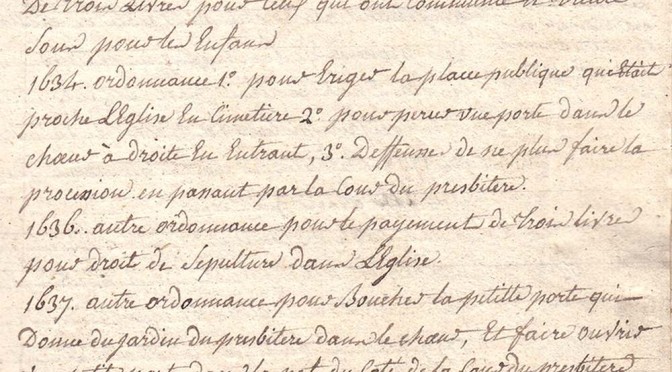 De trois Livres pour ceux qui ont communié et
sous pour les Enfans
1634. ordonnance 1º. pour Eriger la place publique qui Etait
proche LEglise En Cimetiere 2º. pour percer une porte dans le
chœur à droite En Entrant, 3º. Deffense de ne plus faire la
procession en passant par la Cour du presbitere.
1636. autre ordonnance pour le payement de trois livre
pour droit de Sepulture dans LEglise.
1637. autre ordonnance pour Boucher la petitte porte qui
Donne du jardin du presbitere dans le chœur, Et faire ouvrir
du Coté de la Cour du presbitere